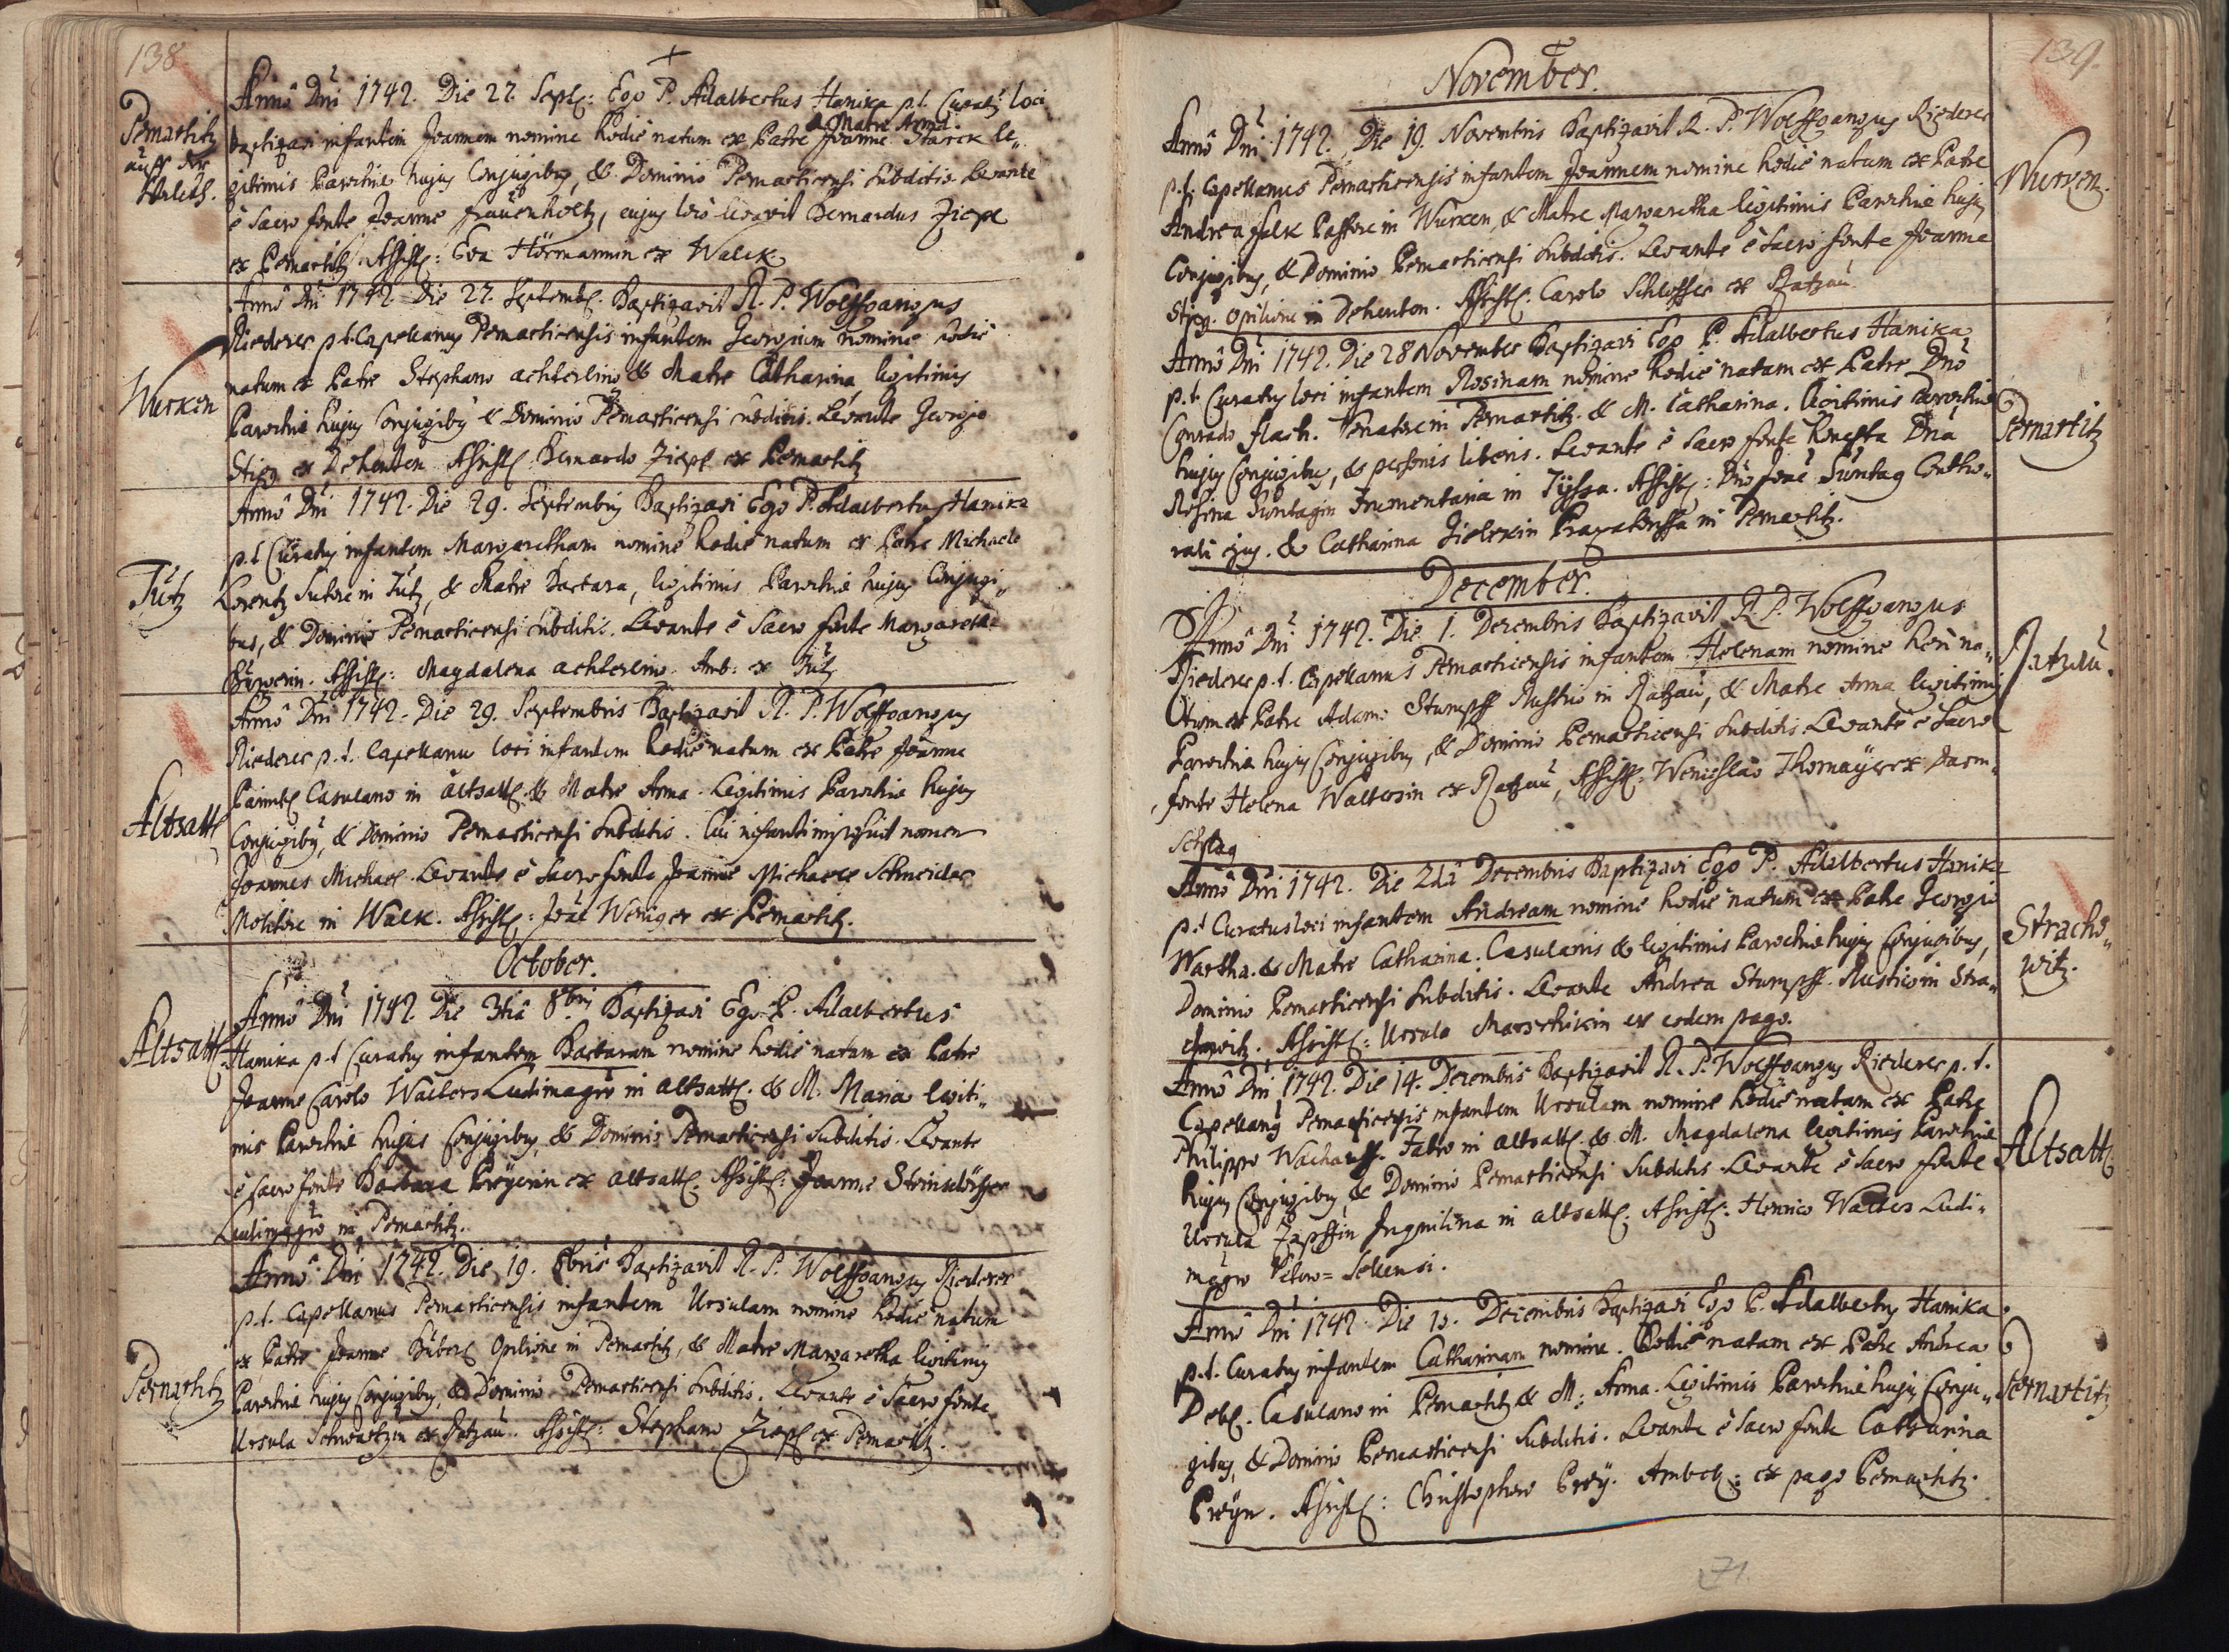 138
Pernartitz
auff der
Annô Dni 1742. Die 27. Sept: Ego P. Adalbertus Hanika p.t. Curatus loci
& Matre Anna
baptizavi infantem Joannem nomine hodiè natum ex Patre Joanne Starck le„
gitimis Parochiæ hujus Conjugibus, & Dominio Pernarticensi subditis Levante
è sacro fonte Joanne Frauenholtz, cujus loco levavit Bernardus Ziepl
ex Pernartitz Assist: Eva Hörmannin ex Walck.
Wurken
Annô Dni 1742 Die 27. Septemb. Baptizavit R. P. Wolffgangus
Riederer p.t. Capellanus Pernarticensis infantem Georgium nomine hodiè
natum ex Patre Stephano achterlino & Matre Catharina legitimis
Parochiæ hujus Conjugibus & Dominio Pernarticensi subditis. Levante Georgio
Stieg ex Dehenten Assist. Bernardo Ziepl ex Pernartitz
Tütz
Annô Dni 1742. Die 29. Septembris Baptizavi Ego P. Adalbertus Hanika
p.t Curatus infantem Margaretham nomine hodiè natum ex Patre Michaele
Lorentz Sutore in Tütz, & Matre Barbara, legitimis Parochiæ hujus Conjugi„
bus, & Dominio Pernarticensi subditis. Levante è sacro fonte Margaretha
Assist: Magdalena achterlino. Amb: ex Tütz
Altsattl
Annô Dni 1742. Die 29. Septembris Baptizavit R. P. Wolffgangus
Riederer p.t. Capellanus loci infantem hodiè natum ex Patre Joanne
Casulano in altsattl. & Matre Anna. Legitimis Parochiæ hujus
Conjugibus, & Dominio Pernarticensi subditis. Cui infanti impositum nomen
Joannes Michael. Levante è sacro fonte Joanne Michaele Schneider
Molitore in Walk. Assist: Joan Weniger ex Pernartitz.
October.
Altsattl
Annô Dni 1742. Die 3tiâ 8bris Baptizavi Ego P. Adalbertus
Hanika p.t Curatus infantem Barbaram nomine hodiè natam ex Patre
Joanne Carolo Walters Ludimagro in altsattl. & M. Maria legiti„
mis Parochiæ hujus Conjugibus, & Dominio Pernarticensi subditis. Levante
è sacro fonte Barbara Preyerin ex altsattl. Assist: Joanne Steinsdörffer
Ludimagro in Pernartitz.
Pernartitz
Annô Dni 1742. Die 19. 8bris Baptizavit R. P. Wolffgangus Riederer
p.t. Capellanus Pernarticensis infantem Ursulam nomine hodiè natum
ex Patre Joanne Hüberl Opilione in Pernartitz, & Matre Margaretha legitimis
Parochiæ hujus Conjugibus, & Dominio Pernarticensi subditis. Levante è sacro fonte
Ursula Schwartzin ex Ratzau. Assist: Stephano Ziepl ex Pernartitz.
139.
November.
Wurken.
Annô Dni 1742. Die 19. Novembris Baptizavit R. P. Wolffgangus Riederer
p.t. Capellanus Pernarticensis infantem Joannem nomine hodiè natum ex Patre
Andrea Falk Pastore in Wurken, & Matre Margaretha legitimis Parochiæ hujus
Conjugibus, & Dominio Pernarticensi subditis. Levante è sacro fonte Joanne
Stieg. opilione in Dehenten. Assist. Carolo Schlosser ex Ratzau
Pernartitz
Annô Dni 1742. Die 28 November Baptizavi Ego P. Adalbertus Hanika
p.t. Curatus loci infantem Rosinam nomine hodiè natam ex Patre Dnô
Conrado flach. Venatore in Pernartitz. & M. Catharina. legitimis Parochiæ
hujus Conjugibus, & personis liberis. Levante è sacro fonte honesta Dna
Rosina Suntagin Frumentaria in Tÿssa. Assist: Dnô Joae Suntag Contho„
rali ejus. & Catharina Zielckin in Pernartitz.
December.
Ratzau.
Annô Dni 1742. Die 1. Decembris Baptizavit R. P. Wolffgangus
Riederer p.t. Capellanus Pernarticensis infantem Helenam nomine heri na„
tum ex Patre Adamo Stumpff Rustico in Ratzau, & Matre Anna legitimis
Parochiæ hujus Conjugibus, & Dominio Pernarticensi subditis. Levante è sacro
fonte Helena Waltersin ex Ratzau, Assist: Wenceslao Thomaÿer ex Darm„
schlag
Stracho„
witz.
Annô Dni 1742. Die 2dâ Decembris Baptizavi Ego P. Adalbertus Hanika
p.t Curatus loci infantem Andream nomine hodiè natum ex Patre Georgio
Wartha. & Matre Catharina. Casulanis & legitimis Parochiæ hujus Conjugibus,
Dominio Pernarticensi subditis. Levante Andrea Stumpff. Rustico in Stra„
chowitz. Assist: Ursula Marschikin ex eodem pago.
Altsattl
Annô Dni 1742. Die 14. Decembris Baptizavit R. P. Wolffgangus Riederer p.t.
Capellanus Pernarticensis infantem Ursulam nomine hodiè natam ex Patre
Philippo Fabro in altsattl. & M. Magdalena legitimis Parochiæ
hujus Conjugibus, & Dominio Pernarticensi subditis. Levante è sacro fonte
Ursula Zapffin Inquilina in altsattl. Assist: Henrico Walters Ludi„
magro
Pernartitz
Annô Dni 1742. Die 15. Decembris Baptizavi Ego P. Adalbertus Hanika
p.t. Curatus infantem Catharinam nomine. hodiè natam ex Patre Andrea
Casulano in Pernartitz & M: Anna. Legitimis Parochiæ hujus Conju„
gibus, & Dominio Pernarticensi subditis. Levante è sacro fonte Catharina
Preÿn. Assist: Christophoro Preÿ. ex pago Pernartitz.